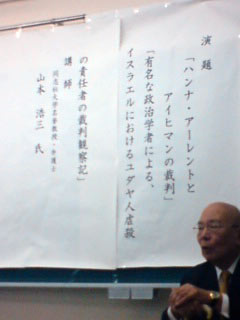 演題
「ハンナ・アーレントと
アイヒマンの裁判」
「有名な政治学者による、
イスラエルにおけるユダヤ人虐殺
の責任者の裁判観察記」
講師
同志社大学名誉教授・弁護士
山本 浩三 氏